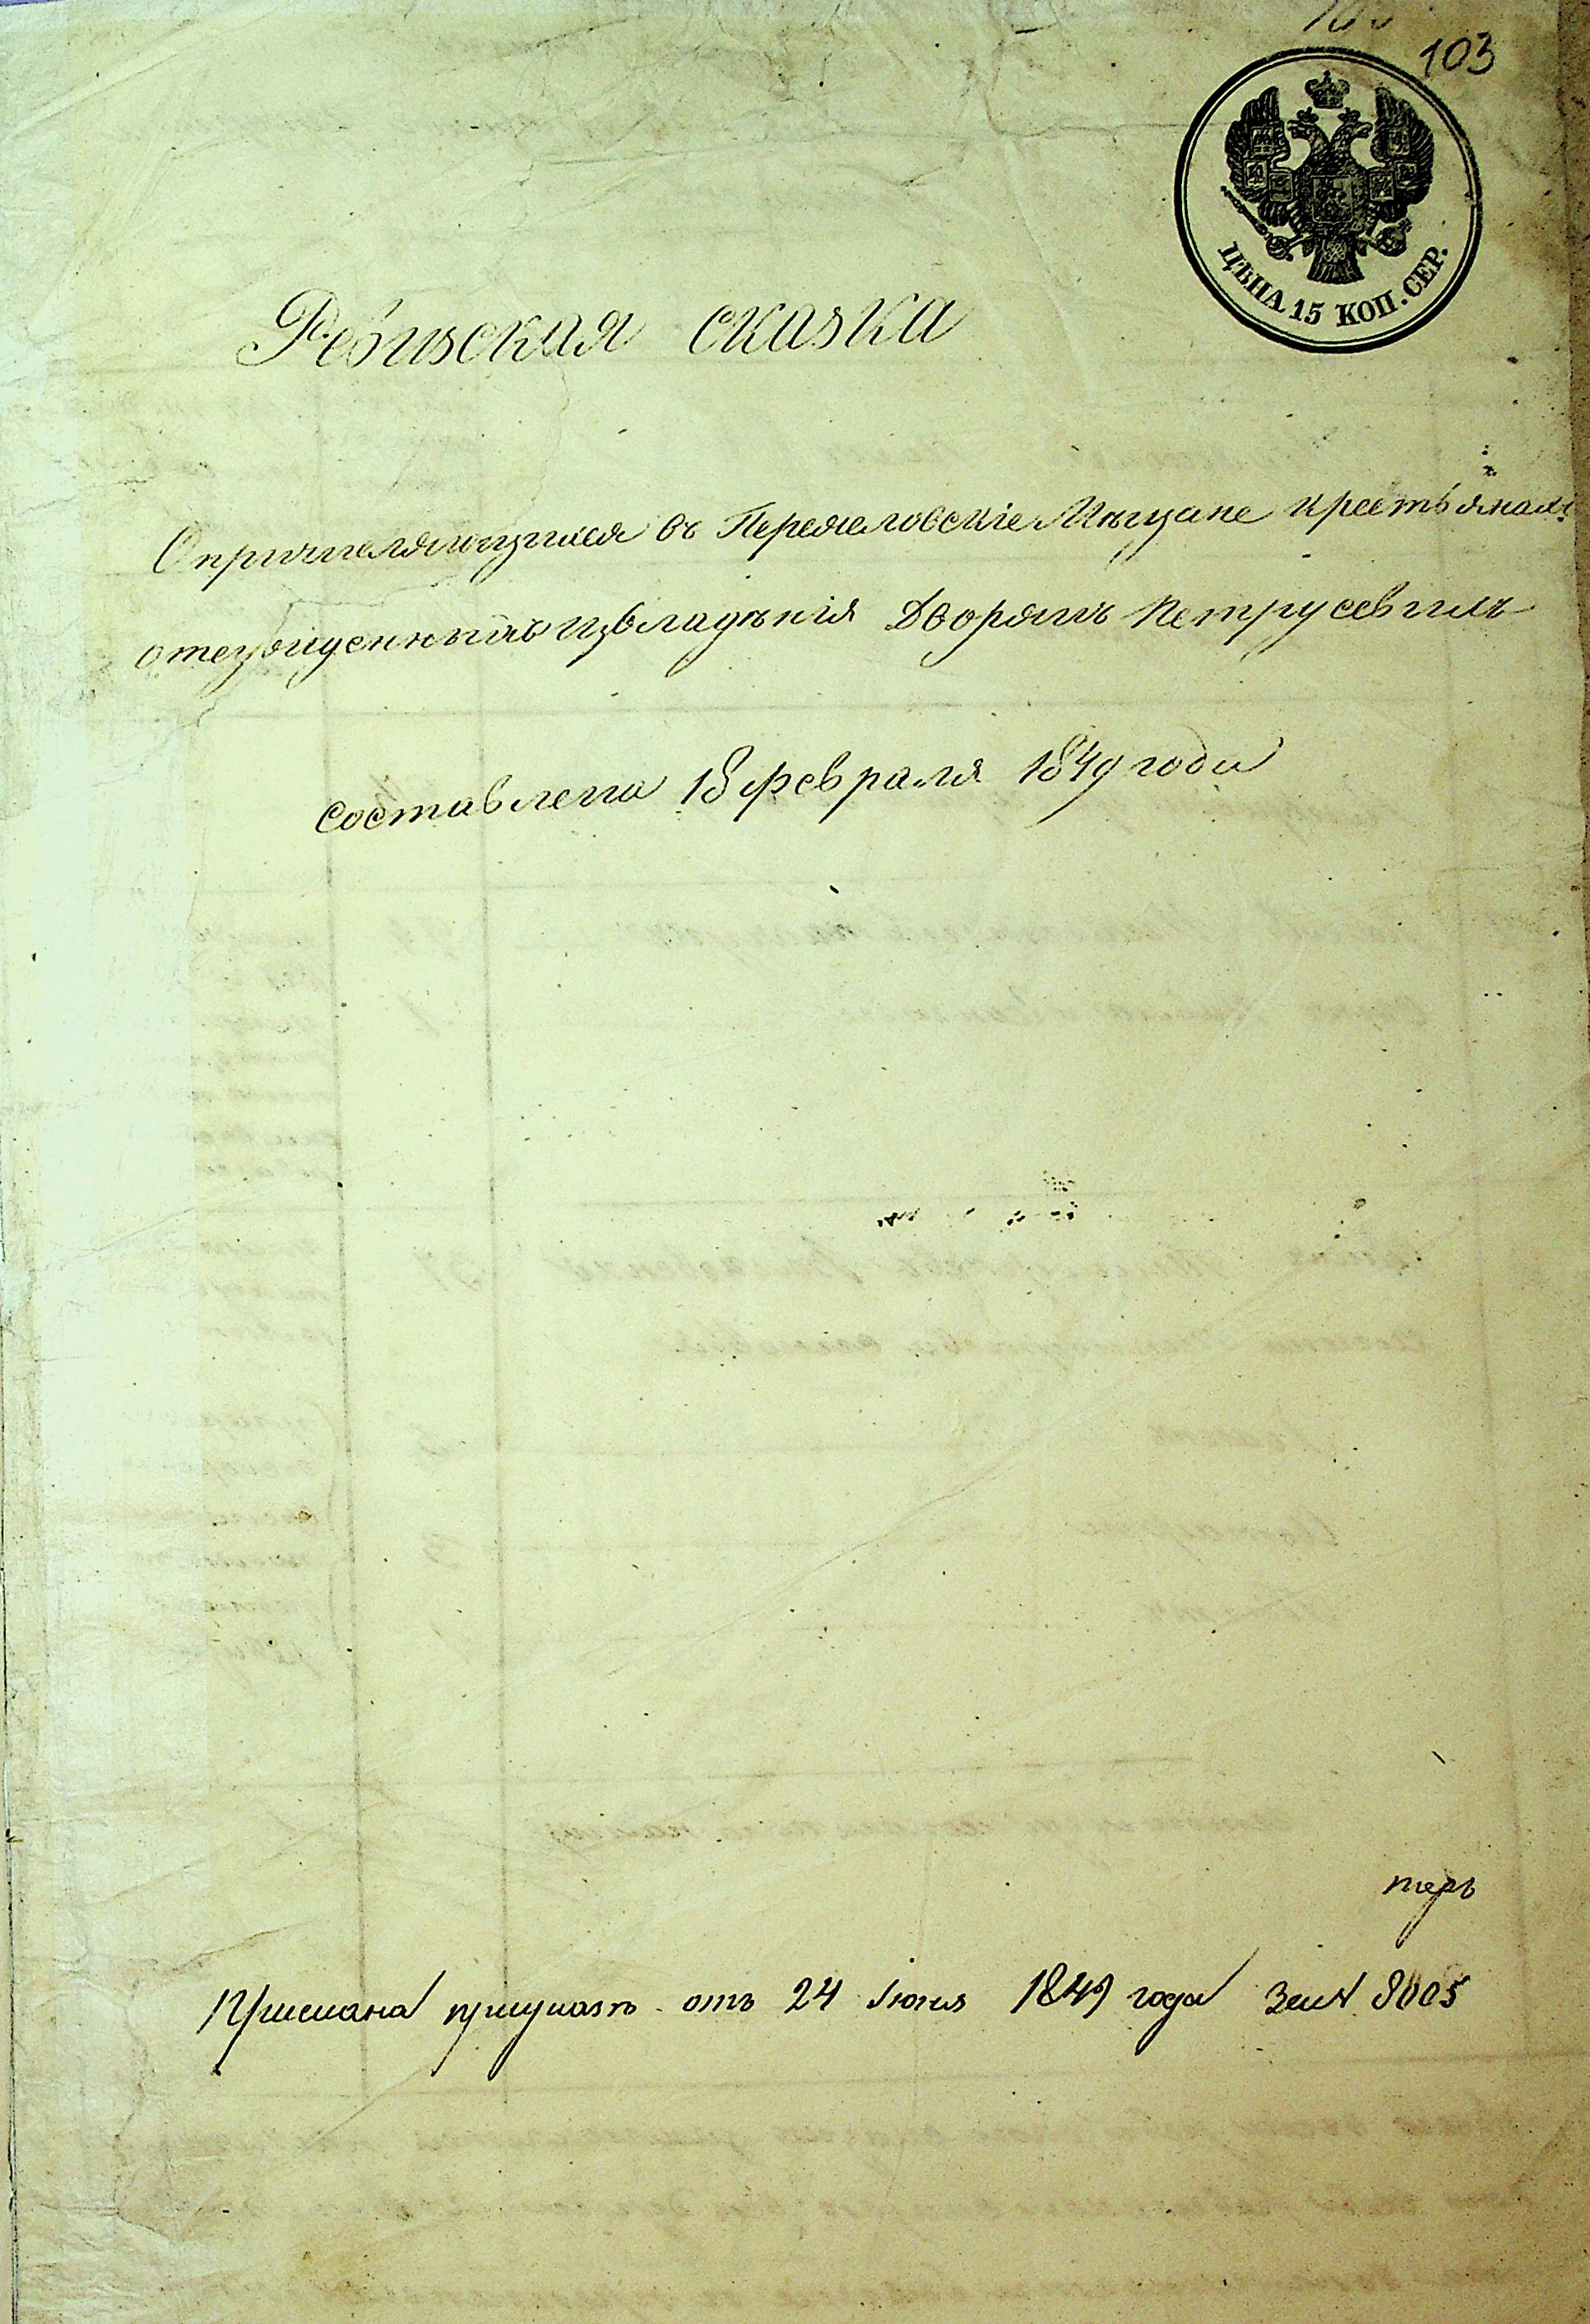 103
ЦѢНА 15 КОП. СЕР.
Ревизская сказка
О причисляющихся въ Переяславскіе Мѣщане крестьянахъ
отсужденныхъ изъ владѣнія Дворянъ Петрусевичъ
составлена 18 февраля 1849 года
при указѣ отъ 24 Іюня 1849 года За № 8005